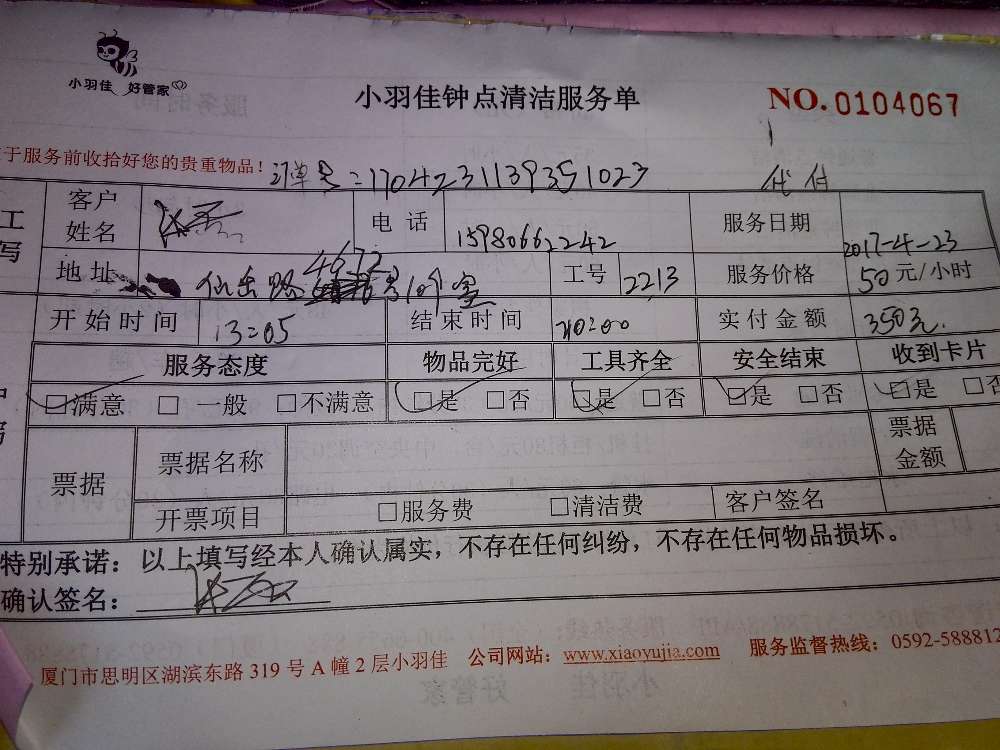 小羽佳 好管家
小羽佳钟点清洁服务单
NO.0104067
于服务前收拾好您的贵重物品！
订单号=1704231139351023
代付
工 客户姓名 电话 15980662242 服务日期 2017-4-23
写 地址 仙岳路 工号 2213 服务价格 50元/小时
开始时间 13:05 结束时间 20:00 实付金额 350元
服务态度 物品完好 工具齐全 安全结束 收到卡片
□满意 □一般 □不满意 □是 □否 □是 □否 □是 □否 □是 □否
票据 票据名称 票据金额
开票项目 □服务费 □清洁费 客户签名
特别承诺：以上填写经本人确认属实，不存在任何纠纷，不存在任何物品损坏。
确认签名：
厦门市思明区湖滨东路 319 号 A 幢 2 层小羽佳 公司网站：www.xiaoyujia.com 服务监督热线：0592-588812